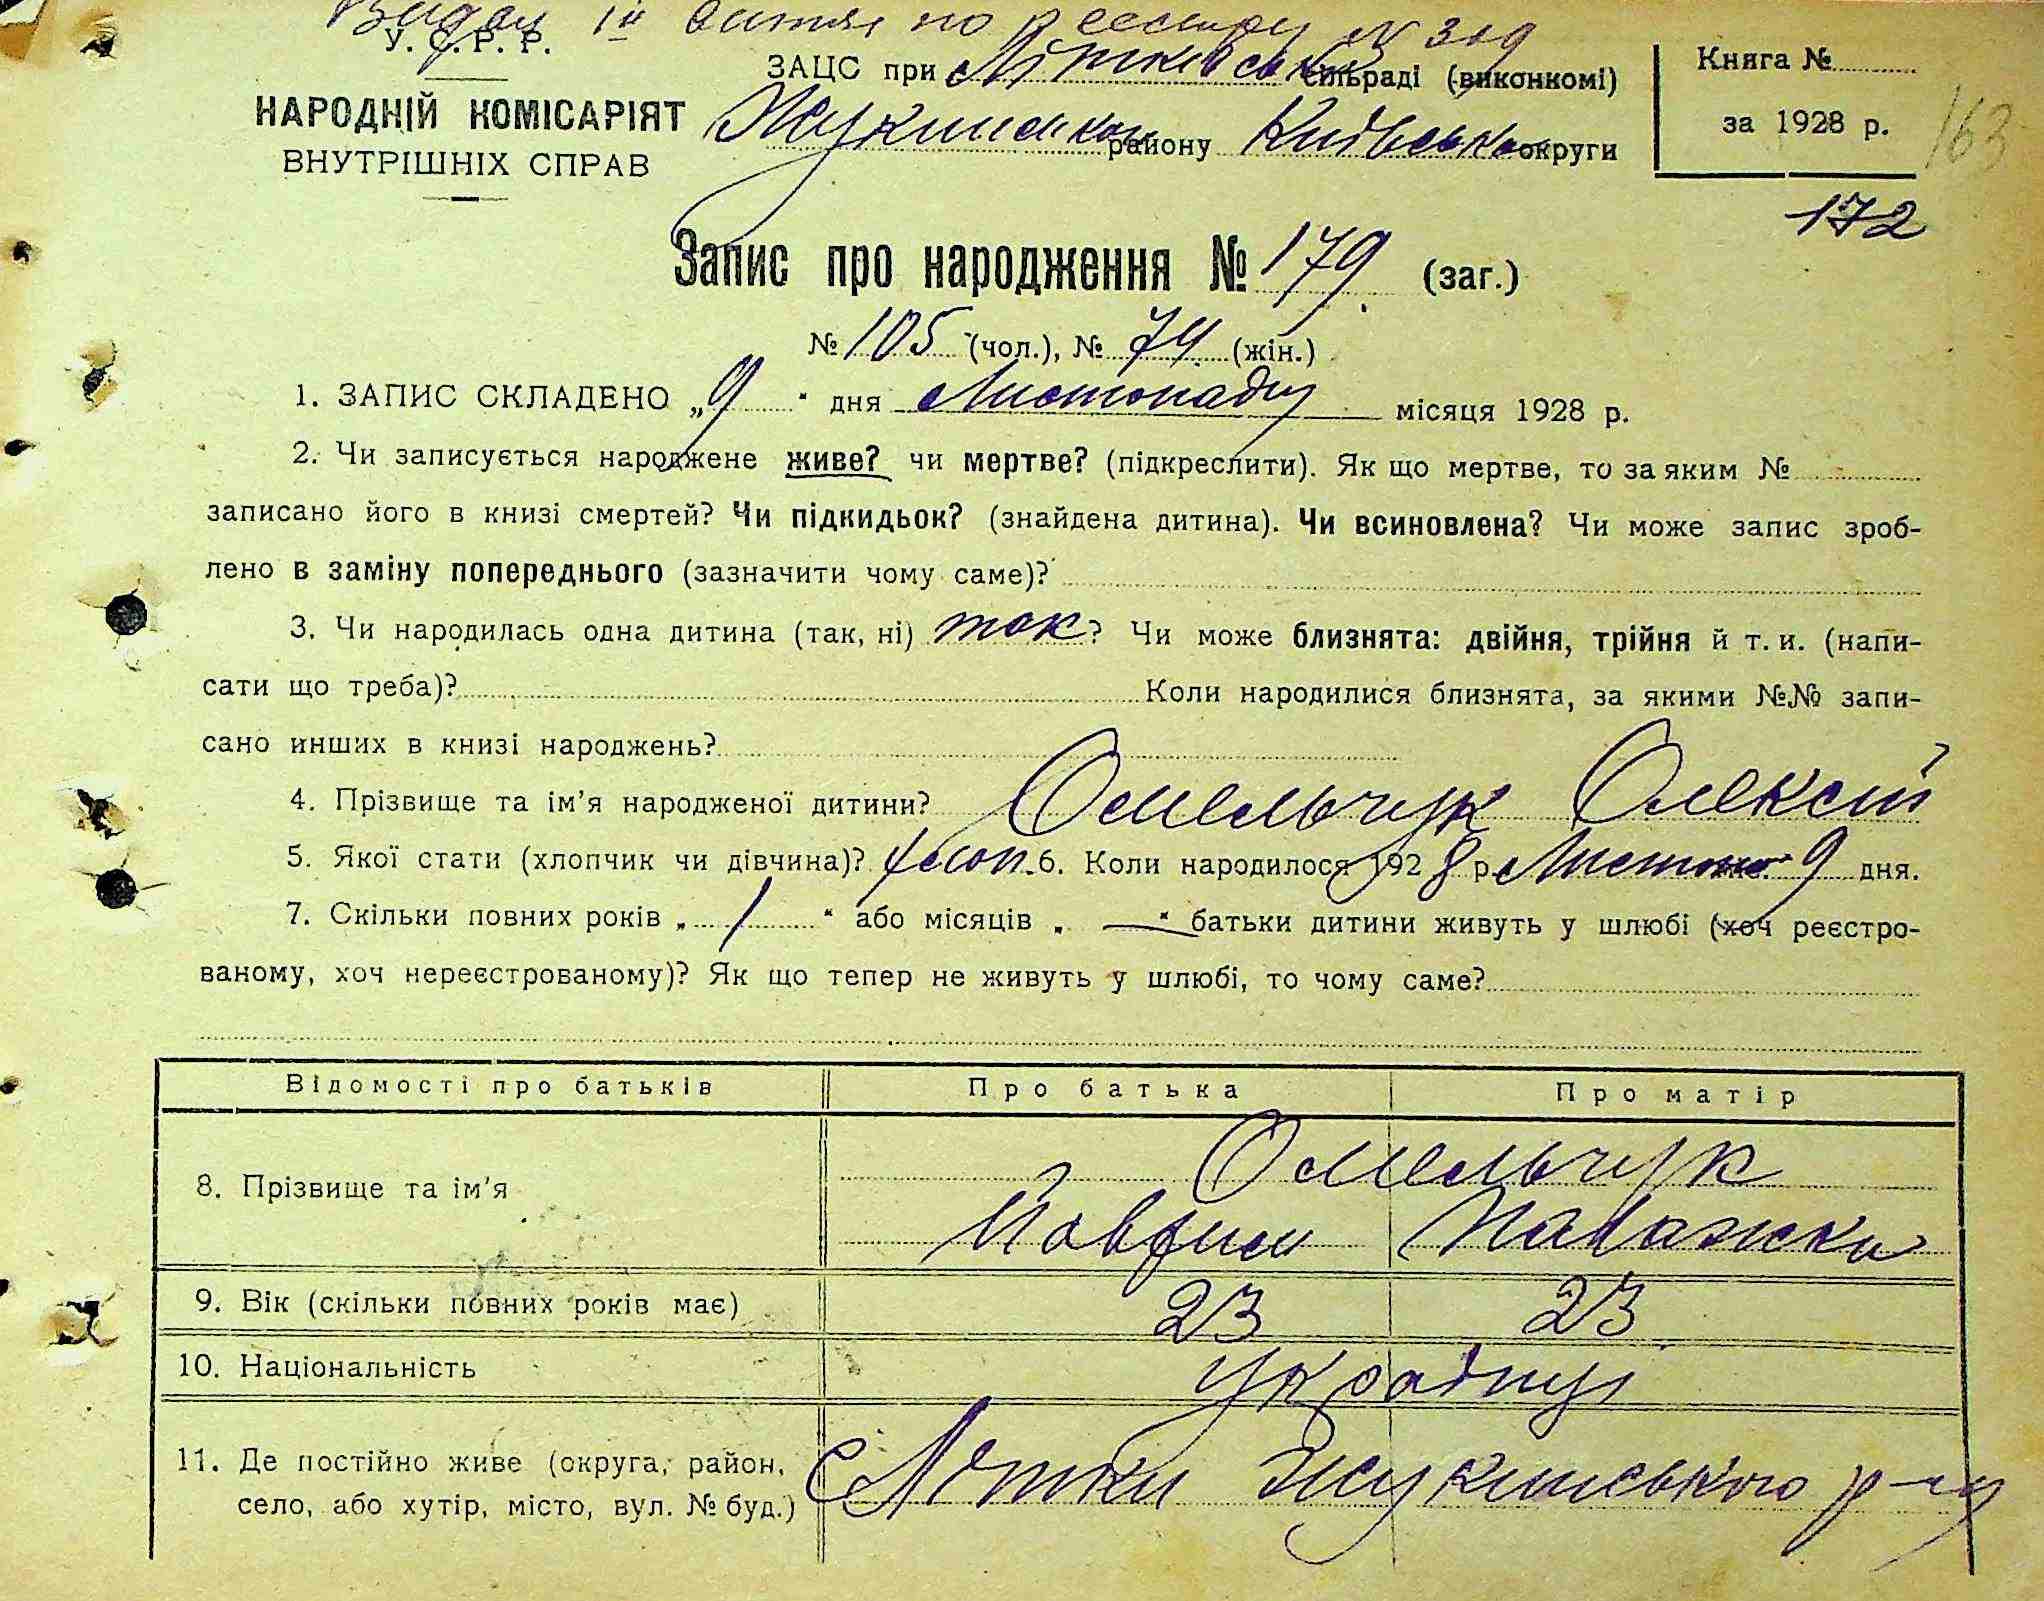 У. С. Р. Р.
НАРОДНІЙ КОМІСАРІЯТ
ВНУТРІШНІХ СПРАВ
ЗАЦС при Літківськ сільраді (виконкомі)
Жукинськ району Київської округи
Книга №
за 1928 р.
163
172
Запис про народження № 179 (заг.)
№ 105 (чол.), № 74 (жін.)
1. ЗАПИС СКЛАДЕНО „9“ дня Листопаду місяця 1928 р.
2. Чи записується народжене живе? чи мертве? (підкреслити). Як що мертве, то за яким №
записано його в книзі смертей? Чи підкидьок? (знайдена дитина). Чи всиновлена? Чи може запис зроб-
лено в заміну попереднього (зазначити чому саме)?
3. Чи народилась одна дитина (так, ні) так? Чи може близнята: двійня, трійня й т. и. (напи-
сати що треба)? Коли народилися близнята, за якими №№ запи-
сано инших в книзі народжень?
4. Прізвище та ім'я народженої дитини? Омельчук Олексій
5. Якої стати (хлопчик чи дівчина)? хлоп. 6. Коли народилося 1928 р. Листоп 9 дня.
7. Скільки повних років „ 1 “ або місяців „ — “ батьки дитини живуть у шлюбі (хоч реєстро-
ваному, хоч нереєстрованому)? Як що тепер не живуть у шлюбі, то чому саме?
Відомості про батьків Про батька Про матір
8. Прізвище та ім'я Омельчук
9. Вік (скільки повних років має) 23 23
10. Національність українці
11. Де постійно живе (округа, район,
село, або хутір, місто, вул. № буд.) с Літки Жукинського р-ну